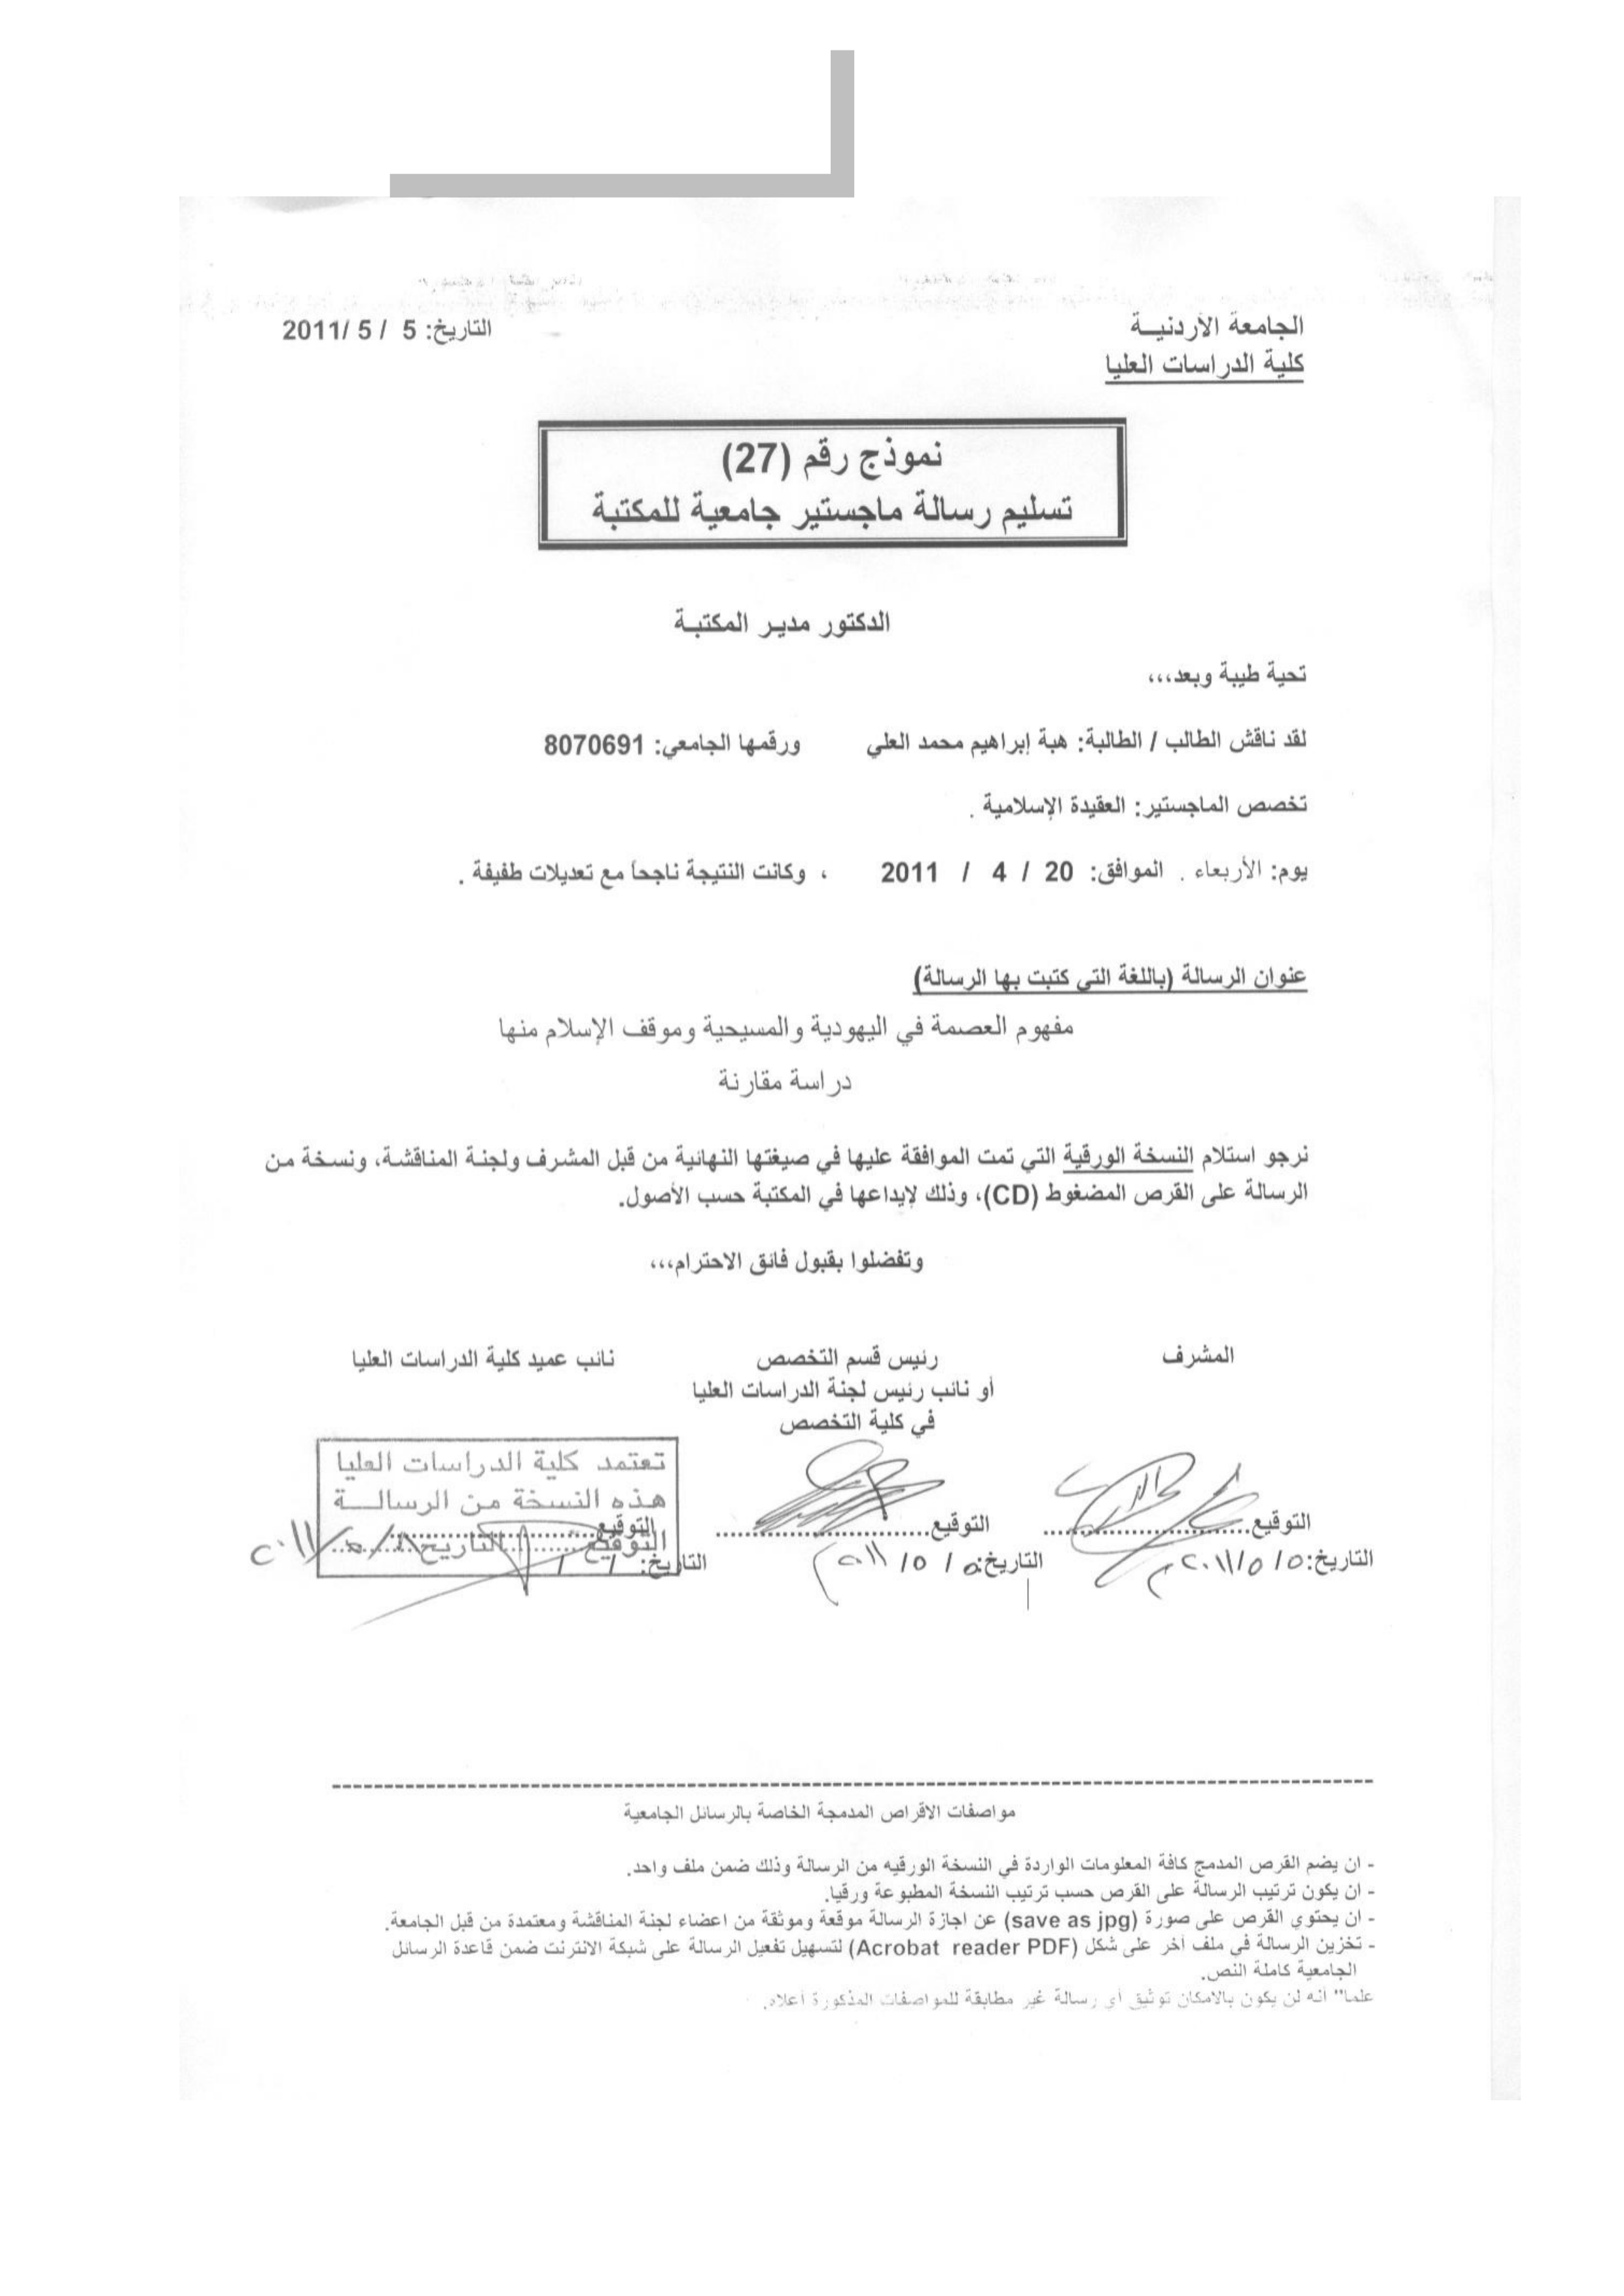 الجامعة الأردنيــة
التاريخ: 5 / 5 /2011
كلية الدراسات العليا
نموذج رقم (27)
تسليم رسالة ماجستير جامعية للمكتبة
الدكتور مدير المكتبـة
تحية طيبة وبعد،،،
لقد ناقش الطالب / الطالبة: هبة إبراهيم محمد العلي ورقمها الجامعي: 8070691
تخصص الماجستير: العقيدة الإسلامية .
يوم: الأربعاء . الموافق: 20 / 4 / 2011 ، وكانت النتيجة ناجحاً مع تعديلات طفيفة .
عنوان الرسالة (باللغة التي كتبت بها الرسالة)
مفهوم العصمة في اليهودية والمسيحية وموقف الإسلام منها
دراسة مقارنة
نرجو استلام النسخة الورقية التي تمت الموافقة عليها في صيغتها النهائية من قبل المشرف ولجنة المناقشة، ونسخة من
الرسالة على القرص المضغوط (CD)، وذلك لإيداعها في المكتبة حسب الأصول.
وتفضلوا بقبول فائق الاحترام،،،
المشرف
رئيس قسم التخصص
أو نائب رئيس لجنة الدراسات العليا
في كلية التخصص
نائب عميد كلية الدراسات العليا
تعتمد كلية الدراسات العليا
هذه النسخة من الرسالــة
التوقيع التاريخ
التوقيع
التوقيع
التوقيع
التاريخ: ٥/ ٥/ ٢٠١١م
التاريخ: ٥/ ٥/
التاريخ: / /
مواصفات الاقراص المدمجة الخاصة بالرسائل الجامعية
- ان يضم القرص المدمج كافة المعلومات الواردة في النسخة الورقيه من الرسالة وذلك ضمن ملف واحد.
- ان يكون ترتيب الرسالة على القرص حسب ترتيب النسخة المطبوعة ورقيا.
- ان يحتوي القرص على صورة (save as jpg) عن اجازة الرسالة موقعة وموثقة من اعضاء لجنة المناقشة ومعتمدة من قبل الجامعة.
- تخزين الرسالة في ملف آخر على شكل (Acrobat reader PDF) لتسهيل تفعيل الرسالة على شبكة الانترنت ضمن قاعدة الرسائل
الجامعية كاملة النص.
علما" أنه لن يكون بالامكان توثيق أي رسالة غير مطابقة للمواصفات المذكورة أعلاه.